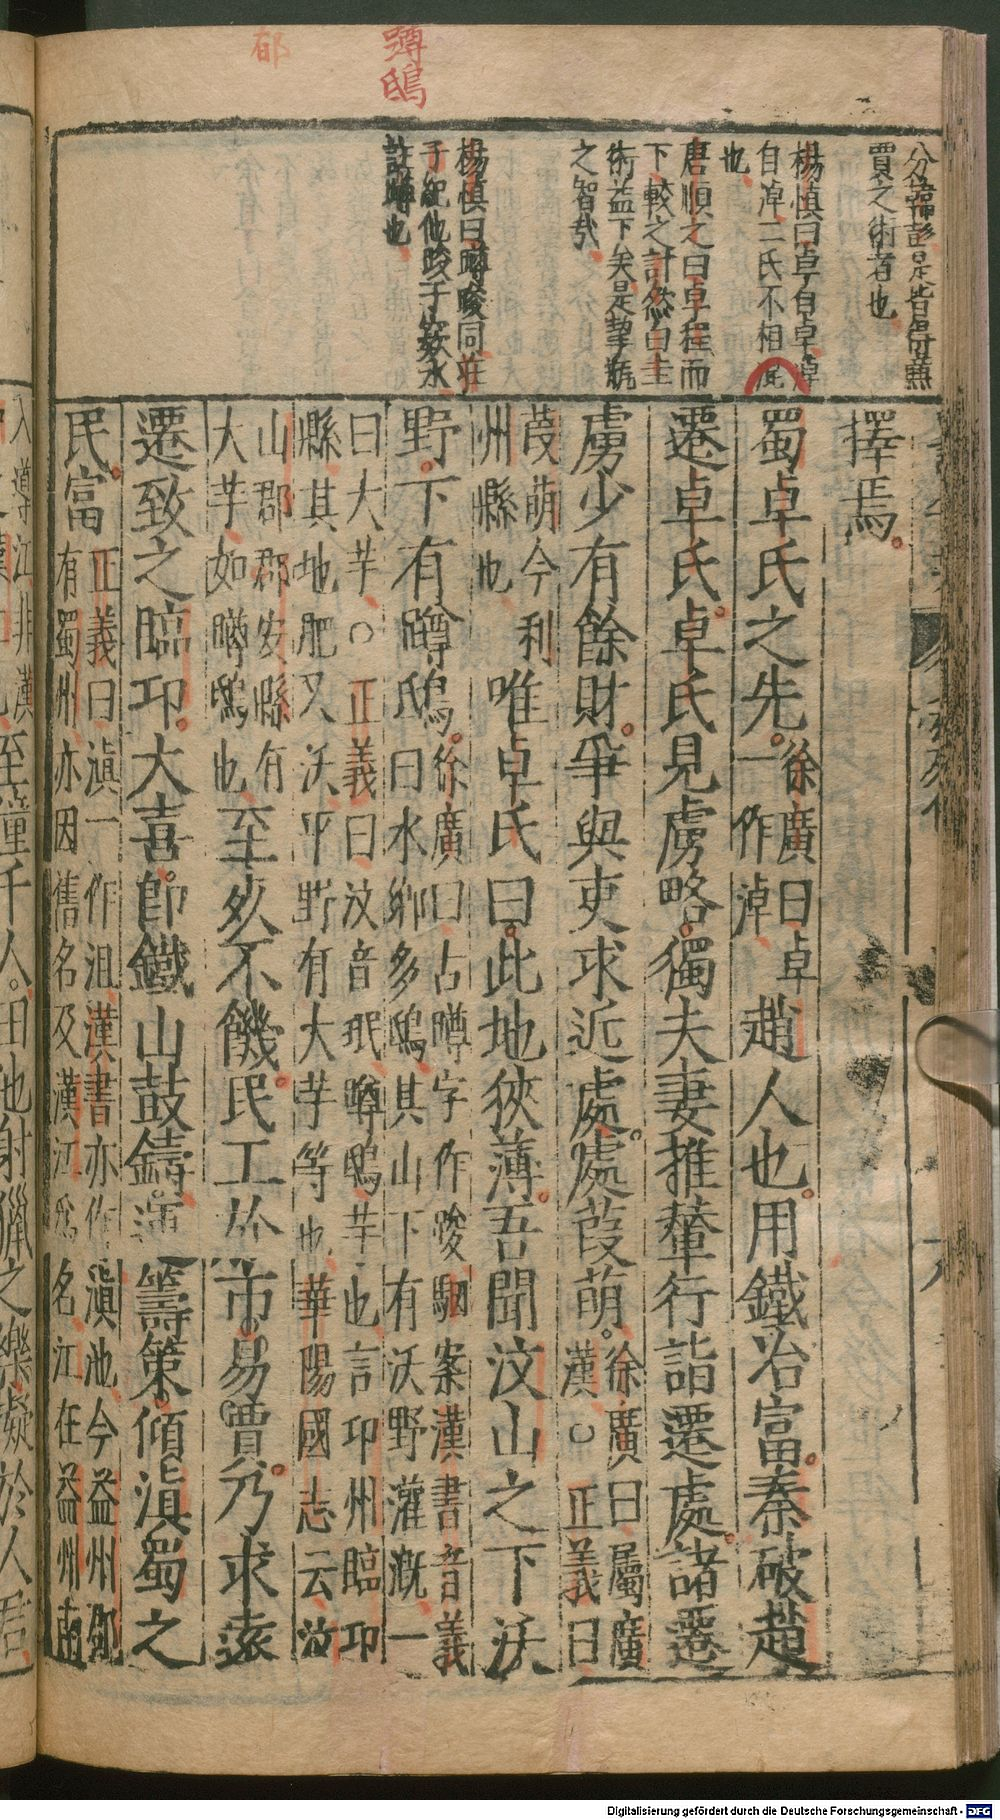 蹲鴟
郁
賈之術者也
楊慎曰卓自卓淖
自淖二氏不相
也
唐順之曰卓程而
下較之計然白圭
術益下矣是挈瓶
之智哉
楊慎曰蹲踆同莊
子紀他踆于窾水
註蹲也
擇焉
蜀卓氏之先徐廣曰卓一作淖趙人也用鐵冶富秦破趙
遷卓氏卓氏見虜略獨夫妻推輦行詣遷處諸遷
虜少有餘財爭與吏求近處處葭萌徐廣曰屬廣漢○正義曰
葭萌今利州縣也唯卓氏曰此地狹薄吾聞汶山之下沃
野下有蹲鴟徐廣曰古蹲字作踆駰案漢書音義曰水鄉多鴟其山下有沃野灌溉一
曰大芋○正義曰汶音珉蹲鴟芋也言卭州臨卭縣其地肥又沃平野有大芋等也華陽國志云汶
山郡郡安縣有大芋如蹲鴟也至死不饑民工於市易賈乃求遠
遷致之臨卭大喜卽鐵山鼓鑄運籌策傾滇蜀之
民富正義曰滇一作沮漢書亦作滇池今益州郡有蜀州亦因舊名及漢江爲名江在益州南
入導江非漢
至僮千人田池射獵之樂擬於人君
Digitalisierung gefördert durch die Deutsche Forschungsgemeinschaft - DFG